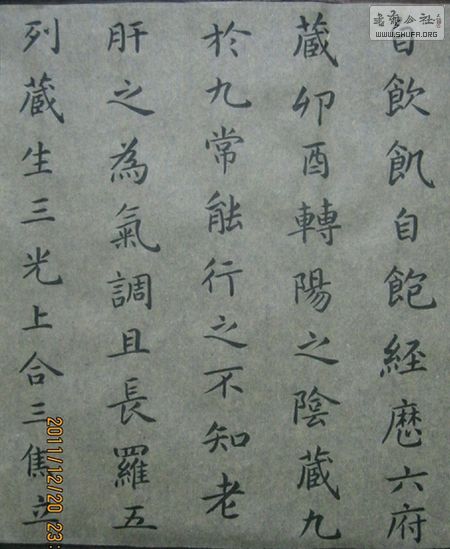 自飲飢自飽經歷六府
藏卯酉轉陽之陰藏九
於九常能行之不知老
肝之為氣調且長羅五
列藏生三光上合三焦
WWW.SHUFA.ORG
2011/12/20 23: